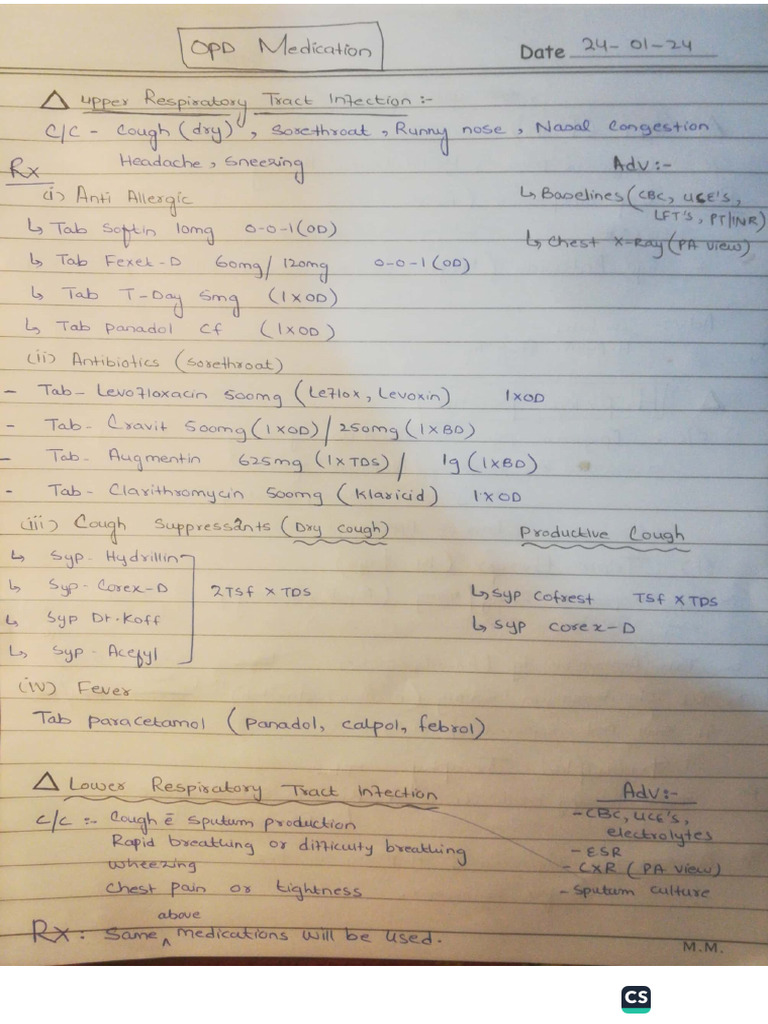 OPD Medication
Date 24-01-24
△ Upper Respiratory Tract Infection :-
C/C - Cough (dry), Sorethroat, Runny nose, Nasal Congestion
Headache, Sneezing
Rx
Adv :-
(i) Anti Allergic
↳ Baselines (CBC, UCE'S,
LFT'S, PT/INR)
↳ Tab Softin 10mg 0-0-1 (OD)
↳ Chest X-Ray (PA view)
↳ Tab Fexet-D 60mg/120mg 0-0-1 (OD)
↳ Tab T-Day 5mg (1xOD)
↳ Tab Panadol Cf (1xOD)
(ii) Antibiotics (Sorethroat)
- Tab- Levofloxacin 500mg (Leflox, Levoxin) 1xOD
- Tab- Cravit 500mg (1xOD) / 250mg (1xBD)
- Tab- Augmentin 625mg (1xTDS) / 1g (1xBD)
- Tab- Clarithromycin 500mg (Klaricid) 1xOD
(iii) Cough Suppressants (Dry cough)
Productive Cough
↳ Syp- Hydrillin
↳ Syp- Corex-D 2TSf x TDS
↳ Syp Cofrest TSf x TDS
↳ Syp Dr. Koff
↳ Syp Corex-D
↳ Syp- Acefyl
(iv) Fever
Tab paracetamol (panadol, calpol, febrol)
△ Lower Respiratory Tract Infection
Adv :-
C/C :- Cough c̄ Sputum production
- CBC, UCE's,
electrolytes
Rapid breathing or difficulty breathing
- ESR
wheezing
- CXR (PA view)
Chest pain or tightness
- Sputum culture
above
Rx : Same ^ medications will be used.
M.M.
CS